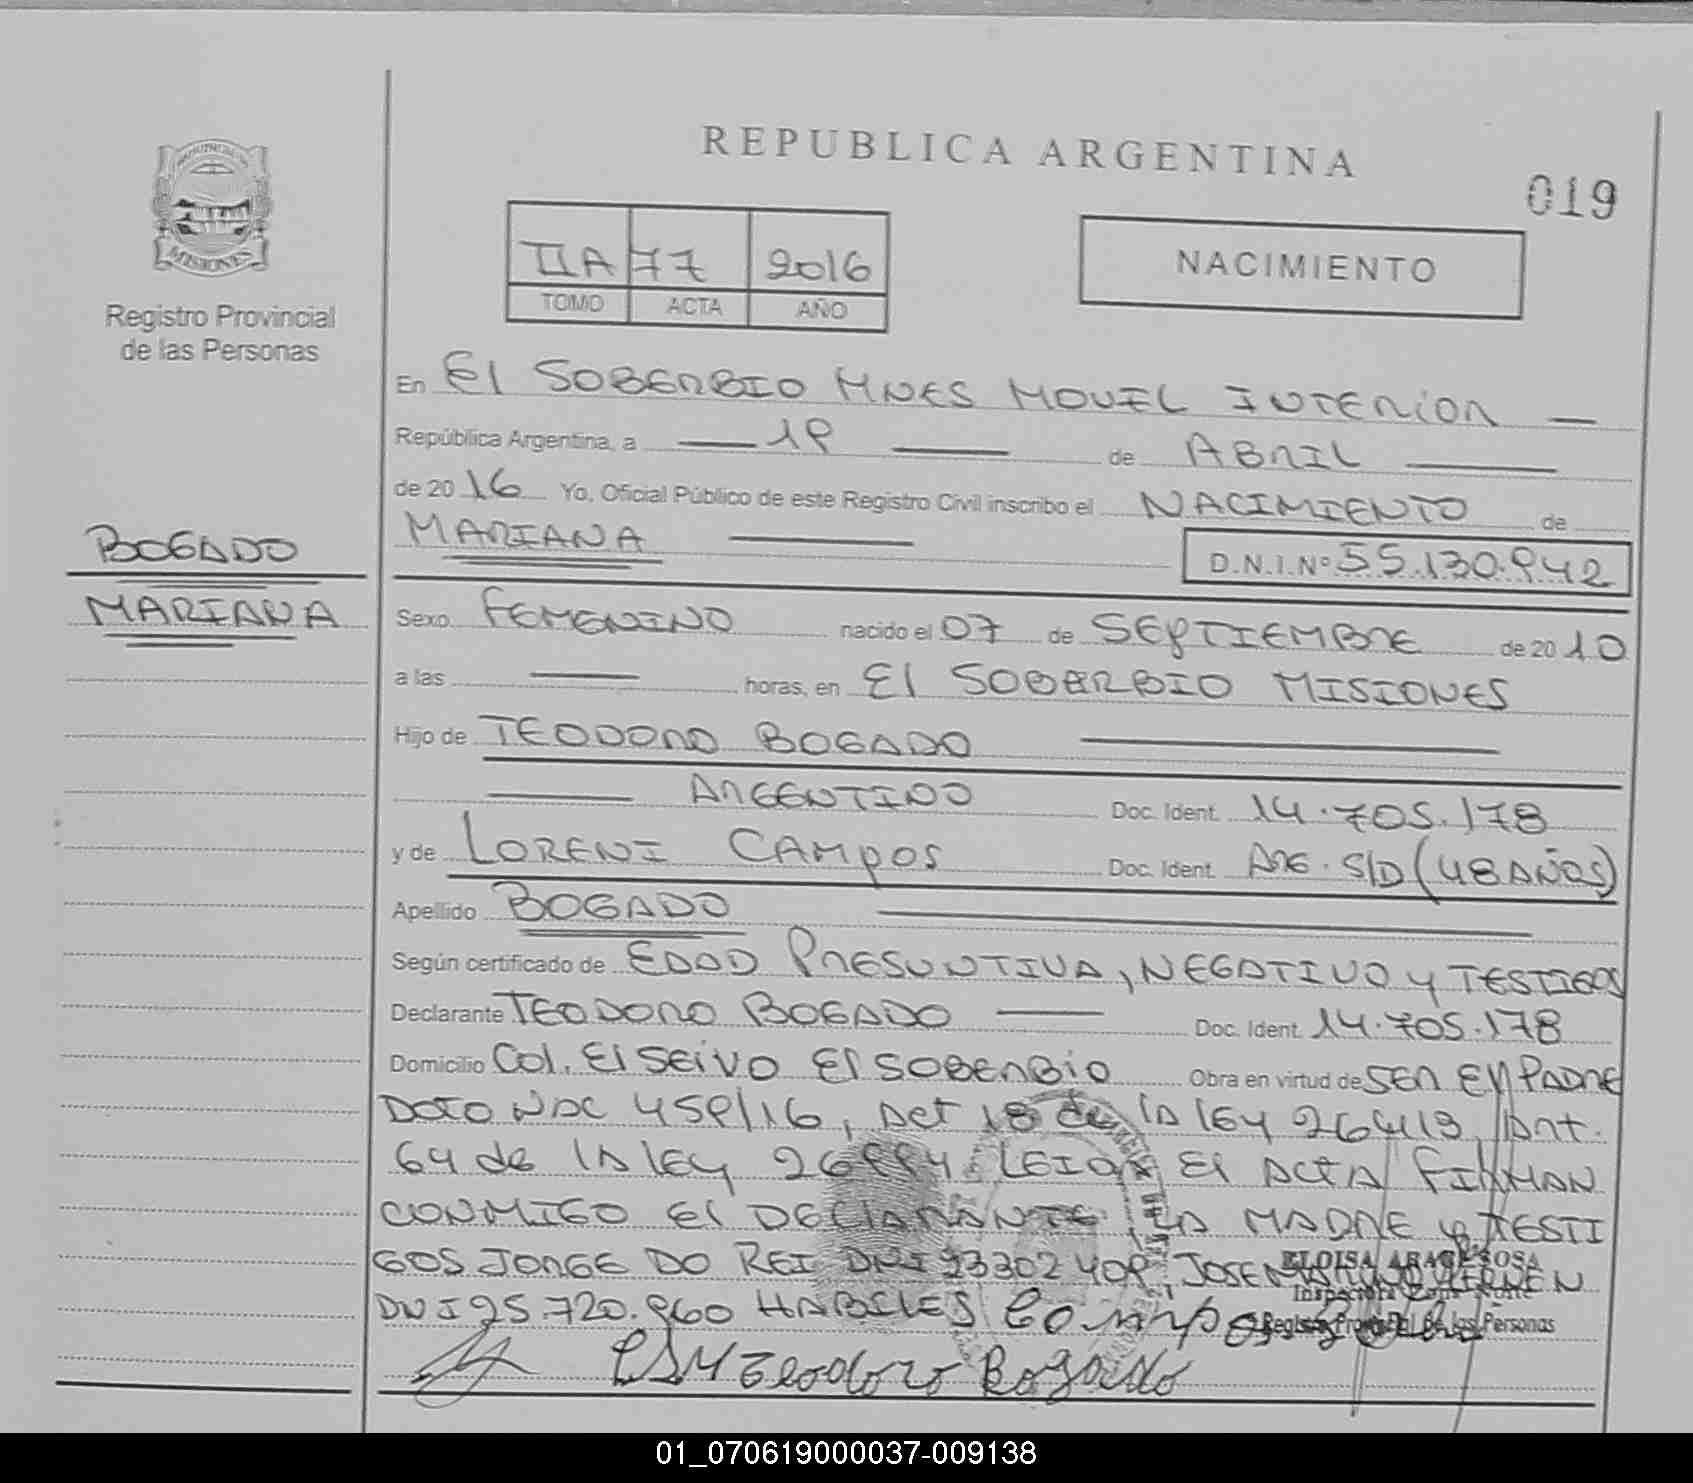 REPUBLICA ARGENTINA
019
MISIONES
Registro Provincial
de las Personas
IIA 77 2016
TOMO ACTA AÑO
NACIMIENTO
En El SOBERBIO MNES MOVIL INTERIOR
República Argentina, a 19 de ABRIL
de 20 16 Yo, Oficial Público de este Registro Civil inscribo el NACIMIENTO de
MARIANA
D.N.I.Nº 55.130.942
BOGADO
MARIANA
Sexo FEMENINO nacido el 07 de SEPTIEMBRE de 20 10
a las horas, en El SOBERBIO MISIONES
Hijo de TEODORO BOGADO
ARGENTINO Doc. Ident. 14.705.178
y de LORENI CAMPOS Doc. Ident. ARG. S/D (48 AÑOS)
Apellido BOGADO
Según certificado de EDAD PRESUNTIVA, NEGATIVO y TESTIGOS
Declarante TEODORO BOGADO Doc. Ident. 14.705.178
Domicilio Col. El SEIVO El SOBERBIO Obra en virtud de SER El PADRE
DCTO NAC 459/16, Act 18 de la lEy 26413, Art.
64 de la lEy 26994 LEIDA El ACTA FIRMAN
CONMIGO El DEClARANTE LA MADRE y TESTI
GOS JORGE DO REI DNI 93302409, JOSE
DNI 25.720.960 HABILES Campos
ELOISA
Inspectora Zona Norte
Registro Provincial de las Personas
Teodoro Bogado
01_070619000037-009138